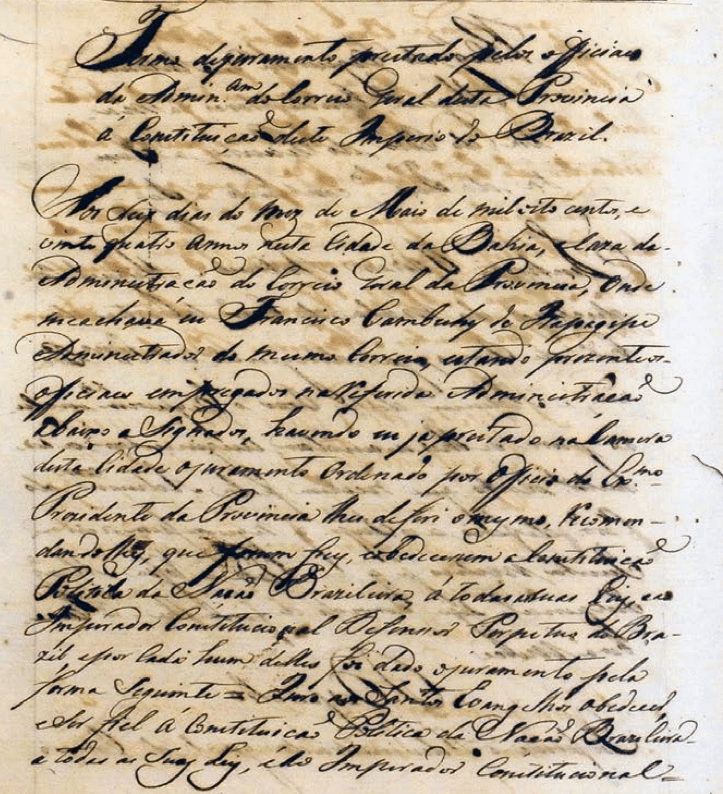 Termo de juramento prestado pelos officiaes
da Admin.am do Correio Geral desta Provincia
á Constituicaõ deste Imperio do Brazil.
Aos seis dias do mez de Maio de mil oito centos, e
vinte quatro annos nesta Cidade da Bahia, e Caza da
Administração do Correio Geral da Provincia, onde
me achava eu Francisco Cambuhy de Itapagipe
Administrador do mesmo Correio, estando prezentes os
officiaes empregados na referida Administracaõ
abaixo a Signados, havendo eu ja prestado na Camera
desta Cidade o juramento Ordenado por Officio do Ex.mo
Prezidente da Provincia lhes deferi o mesmo, recomen-
dandolhes, que fossem fieis, e obedecessem a Constituicaõ
Politica da Nacaõ Brazileira, á todas as suas Leys, e ao
Imperador Constitucional Defensor Perpetuo do Bra-
zil, e por Cada hum delles foi dado o juramento pela
forma Seguinte = Juro aos Santos Evangelhos obedecer,
e Ser fiel a Constituicaõ Politica da Nacaõ Brazileira
a todas as Suas Leys, e ao Imperador Constitucional =